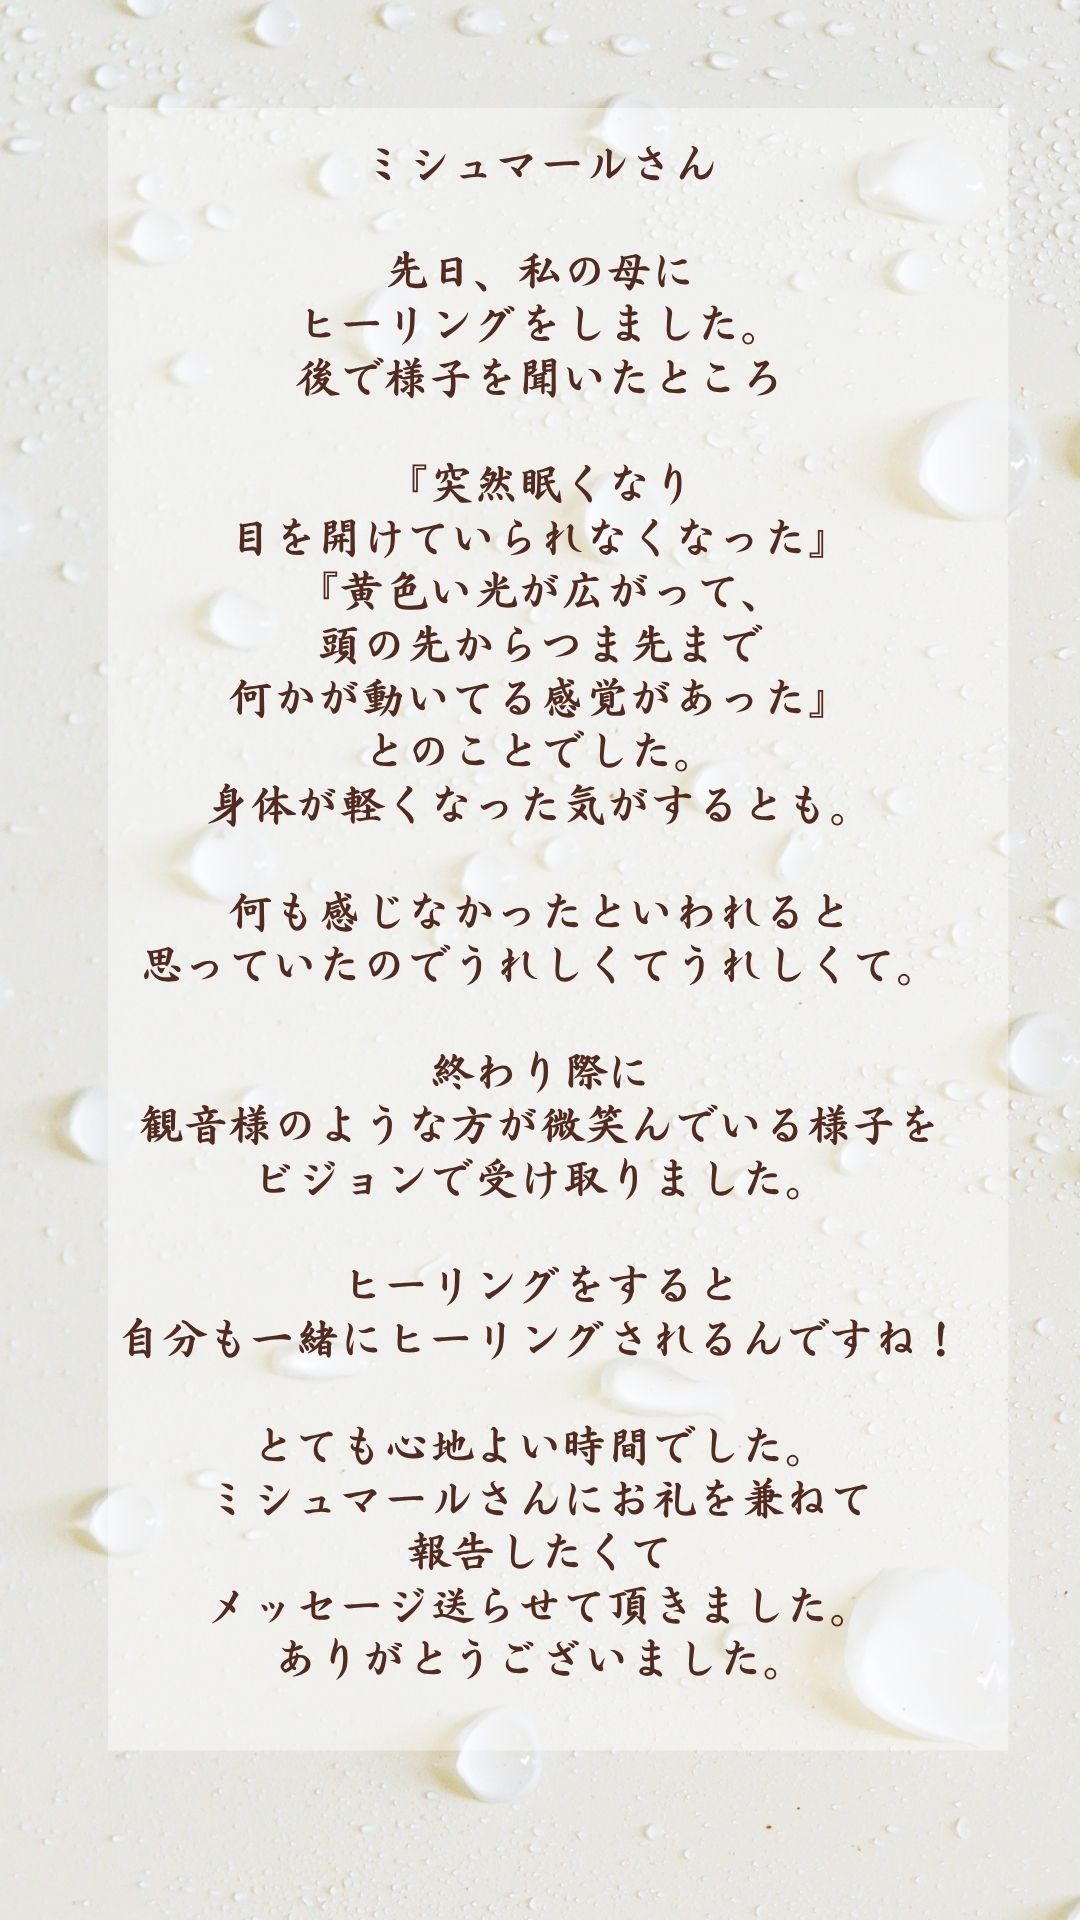 ミシュマールさん
先日、私の母に
ヒーリングをしました。
後で様子を聞いたところ
『突然眠くなり
目を開けていられなくなった』
『黄色い光が広がって、
頭の先からつま先まで
何かが動いてる感覚があった』
とのことでした。
身体が軽くなった気がするとも。
何も感じなかったといわれると
思っていたのでうれしくてうれしくて。
終わり際に
観音様のような方が微笑んでいる様子を
ビジョンで受け取りました。
ヒーリングをすると
自分も一緒にヒーリングされるんですね！
とても心地よい時間でした。
ミシュマールさんにお礼を兼ねて
報告したくて
メッセージ送らせて頂きました。
ありがとうございました。